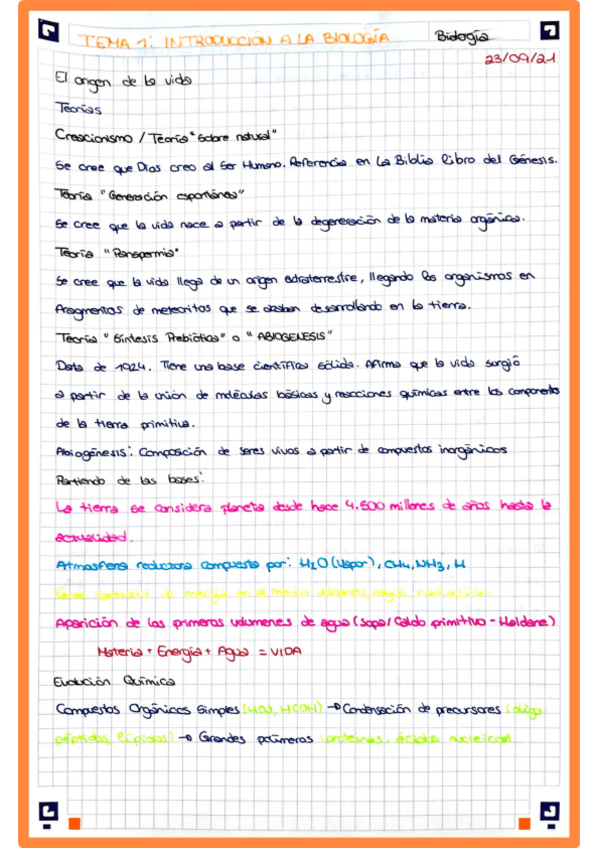 TEMA 1: INTRODUCCIÓN A LA BIOLOGÍA
Biología
23/09/21
El origen de la vida
Teorías
Creacionismo / Teoría "Sobre natural"
Se cree que Dios creo al Ser Humano. Referencia en La Biblia libro del Génesis.
Teoría "Generación espontánea"
Se cree que la vida nace a partir de la degeneración de la materia orgánica.
Teoría "Panspermia"
Se cree que la vida llega de un origen extraterrestre, llegando los organismos en
fragmentos de meteoritos que se acaban desarrollando en la tierra.
Teoría "Síntesis Prebiótica" o "ABIOGENESIS"
Data de 1924. Tiene una base científica sólida. Afirma que la vida surgió
a partir de la unión de moléculas básicas y reacciones químicas entre los componentes
de la tierra primitiva.
Abiogénesis: Composición de seres vivos a partir de compuestos inorgánicos
Partiendo de las bases:
La tierra se considera planeta desde hace 4.500 millones de años hasta la
actualidad.
Atmosfera reductora compuesta por: H2O (Vapor), CH4, NH3, H
de energía en el medio
Aparición de los primeros volumenes de agua (Sopa/Caldo primitivo - Haldane)
Materia + Energía + Agua = VIDA
Evolución Química
Compuestos Orgánicos Simples → Condensación de precursores (oligo
péptidos, lípidos) → Grandes polímeros (proteínas, ácidos nucleicos)